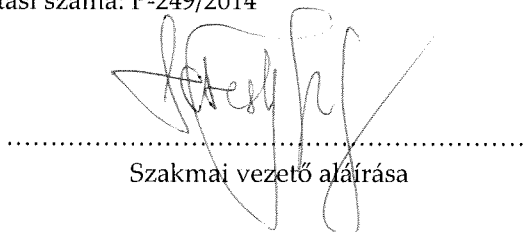 tási száma: F-249/2014
........................................................................
Szakmai vezető aláírása